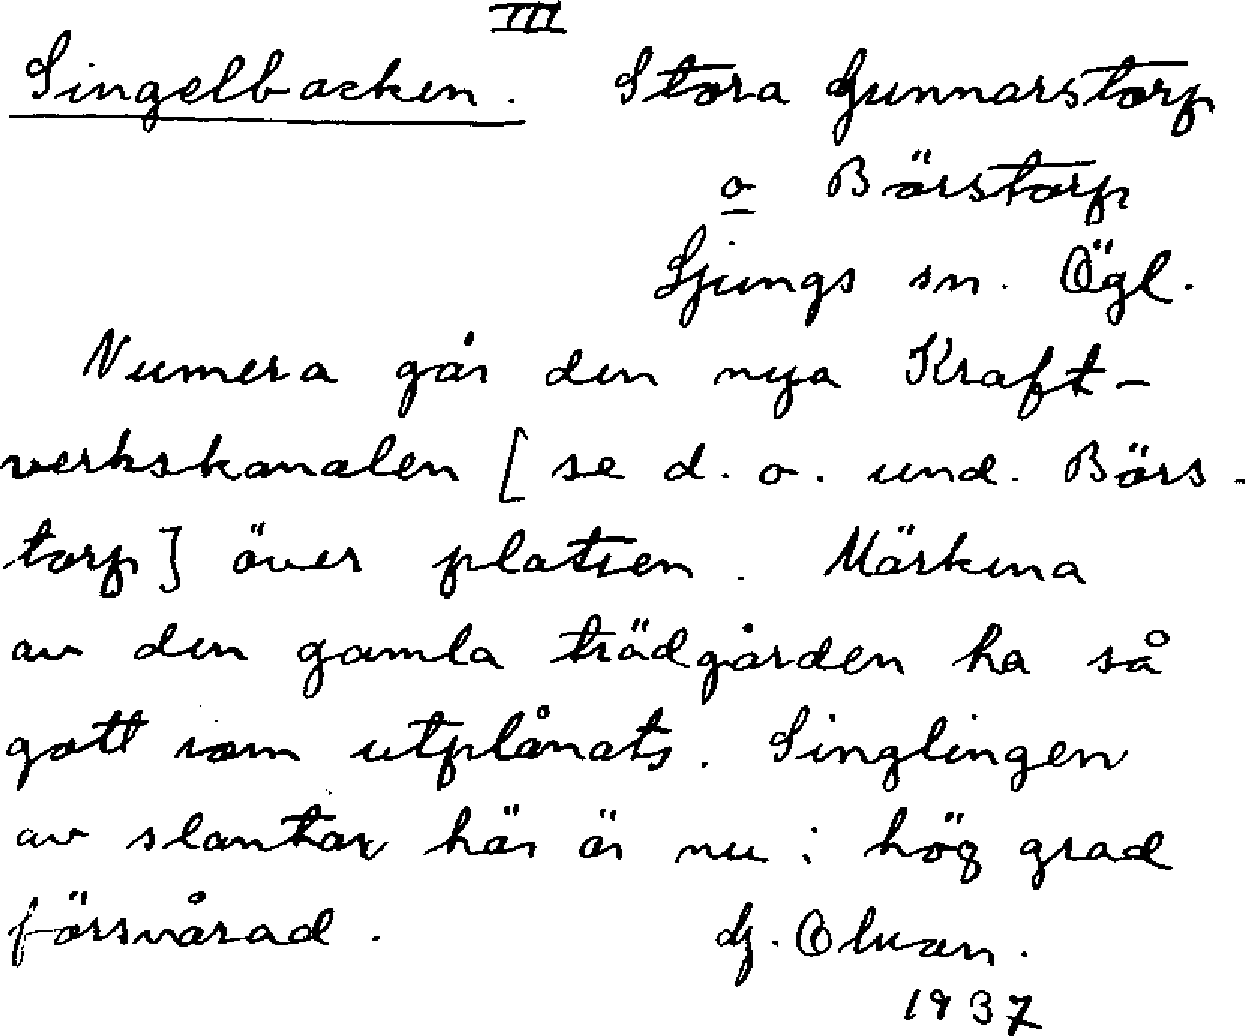 III
Singelbacken. Stora Gunnarstorp
o Börstorp
Ljungs sn. Ögl.
Numera går den nya Kraft-
verkskanalen [se d. o. und. Börs-
torp] över platsen. Märkena
av den gamla trädgården ha så
gott som utplånats. Singlingen
av slantar här är nu i hög grad
försvårad. G.
1937